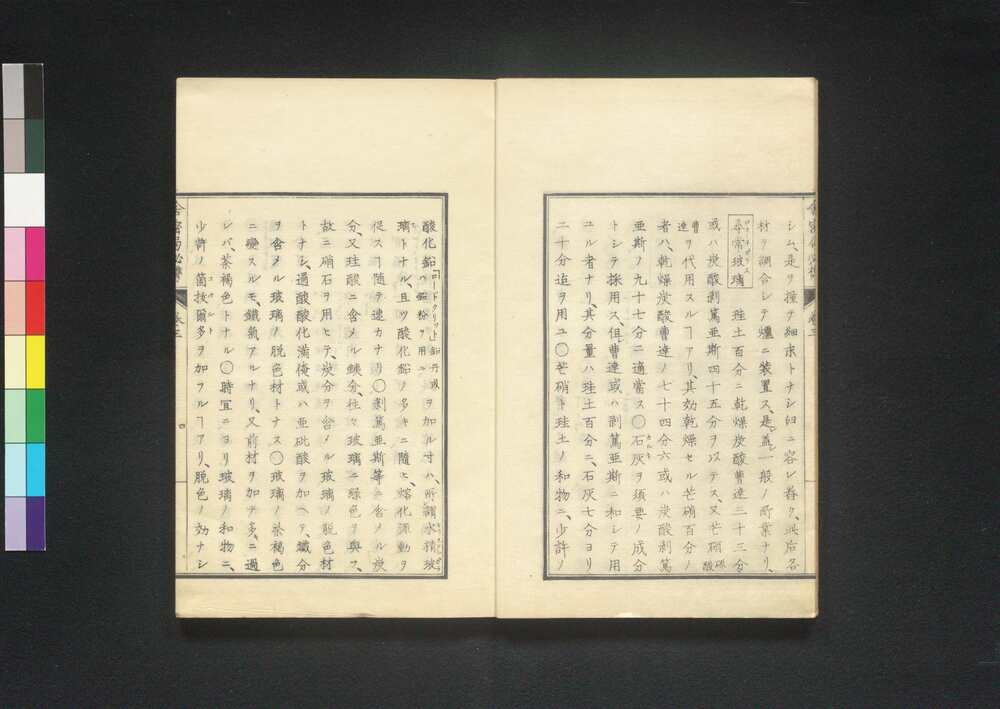 シム、是ヲ擣テ細末トナシ
材ヲ調合シテ爐ニ装置ス、是蓋一般ノ所業ナリ、
尋常玻璃 珪土百分ニ乾燥炭酸曹達三十三分
或ハ炭酸剥篤亜斯四十五分ヲ以テス、又芒硝硫酸
曹達ヲ代用スルヿアリ、其効乾燥セル芒硝百分ノ
者ハ、乾燥炭酸曹達ノ七十四分六或ハ炭酸剥篤
亜斯ノ九十七分二適當ス○石灰ヲ須要ノ成分
トシテ採用ス、但曹達或ハ剥篤亜斯ニ和シテ用
ユル者ナリ、其分量ハ珪土百分ニ、石灰七分ヨリ
二十分迄ヲ用ユ○芒硝ト珪土ノ和物ニ、少許ノ
酸化鉛 ヲ加ル寸ハ、所謂水精玻
璃トナル、且ツ酸化鉛ノ多キニ随ヒ、熔化源動ヲ
促スヿ随テ速カナリ○剥篤亜斯等ニ含メル炭
分、又珪酸ニ含メル鉄分、往々玻璃ニ緑色ヲ與フ、
故ニ硝石ヲ用ヒテ、炭分ヲ含メル玻璃ノ脱色材
トナシ、過酸酸化満俺或ハ亜砒酸ヲ加ヘテ、鐵分
ヲ含メル玻璃ノ脱色材トナス○玻璃ノ茶褐色
ニ變スルモ、鐵氣アルナリ、又前材ヲ加テ多ニ過
レバ、茶褐色トナル○時宜ニヨリ玻璃ノ和物ニ、
少許ノ箇抜爾多ヲ加フルヿアリ、脱色ノ効ナシ
四